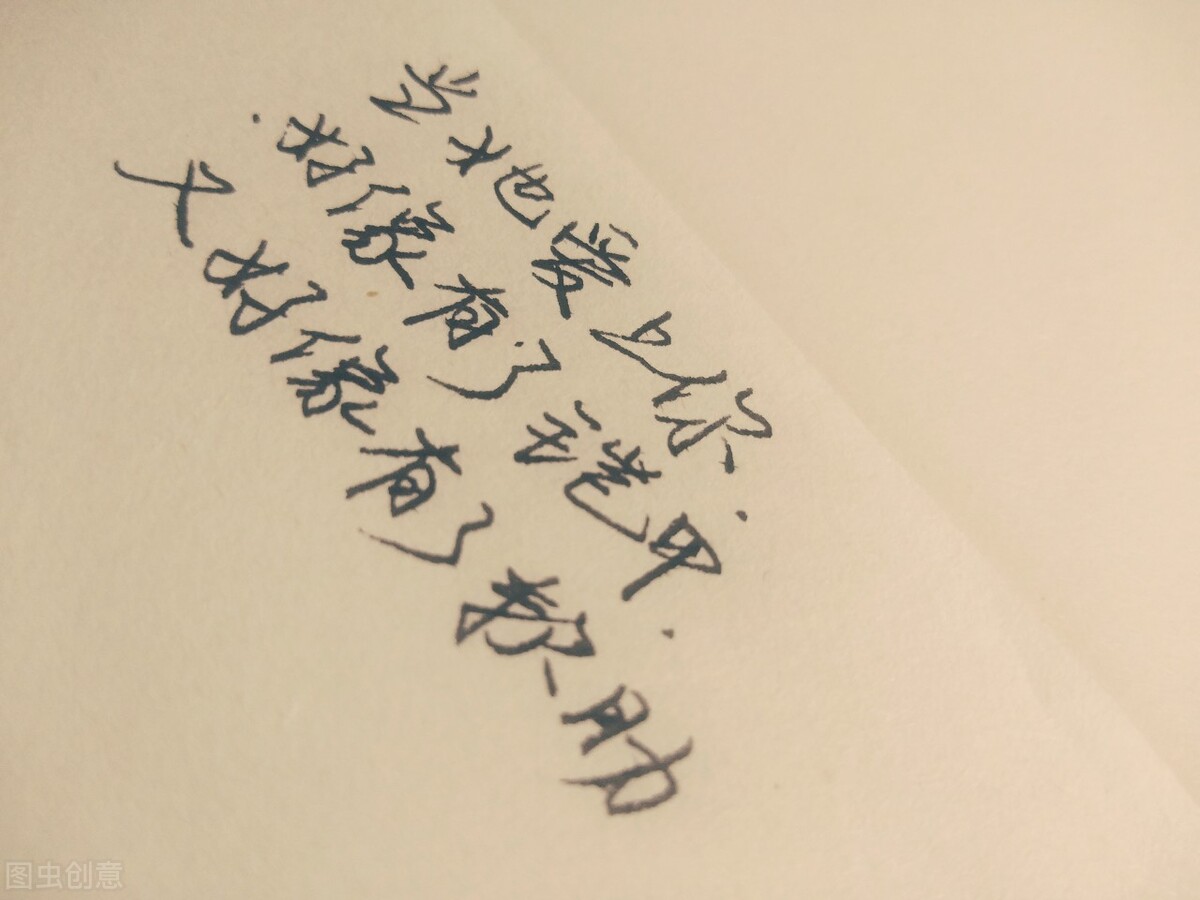 当她爱上你
好像有了铠甲
又好像有了软肋
图虫创意